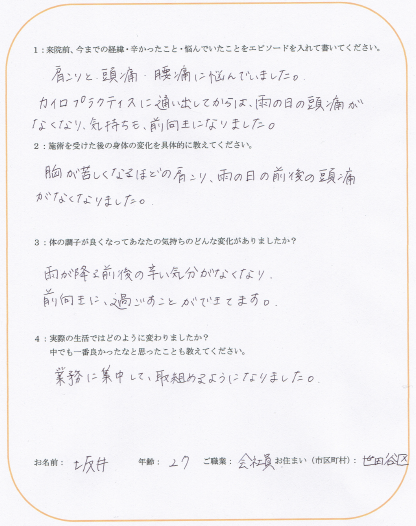 1：来院前、今までの経緯・辛かったこと・悩んでいたことをエピソードを入れて書いてください。
肩こりと、頭痛・腰痛に悩んでいました。
カイロプラクティスに通い出してからは、雨の日の頭痛が
なくなり、気持ちも、前向きになりました。
2：施術を受けた後の身体の変化を具体的に教えてください。
胸が苦しくなるほどの肩こり、雨の日の前後の頭痛
がなくなりました。
3：体の調子が良くなってあなたの気持ちのどんな変化がありましたか？
雨が降る前後の辛い気分がなくなり、
前向きに、過ごすことができてます。
4：実際の生活ではどのように変わりましたか？
中でも一番良かったなと思ったことも教えてください。
業務に集中して、取組めるようになりました。
お名前： 坂井 年齢： 27 ご職業： 会社員 お住まい（市区町村）： 世田谷区